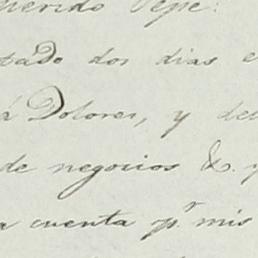 querido Pepe:
tado dos dias e
á Dolores, y de
de negocios &. y
a cuenta pr. mis